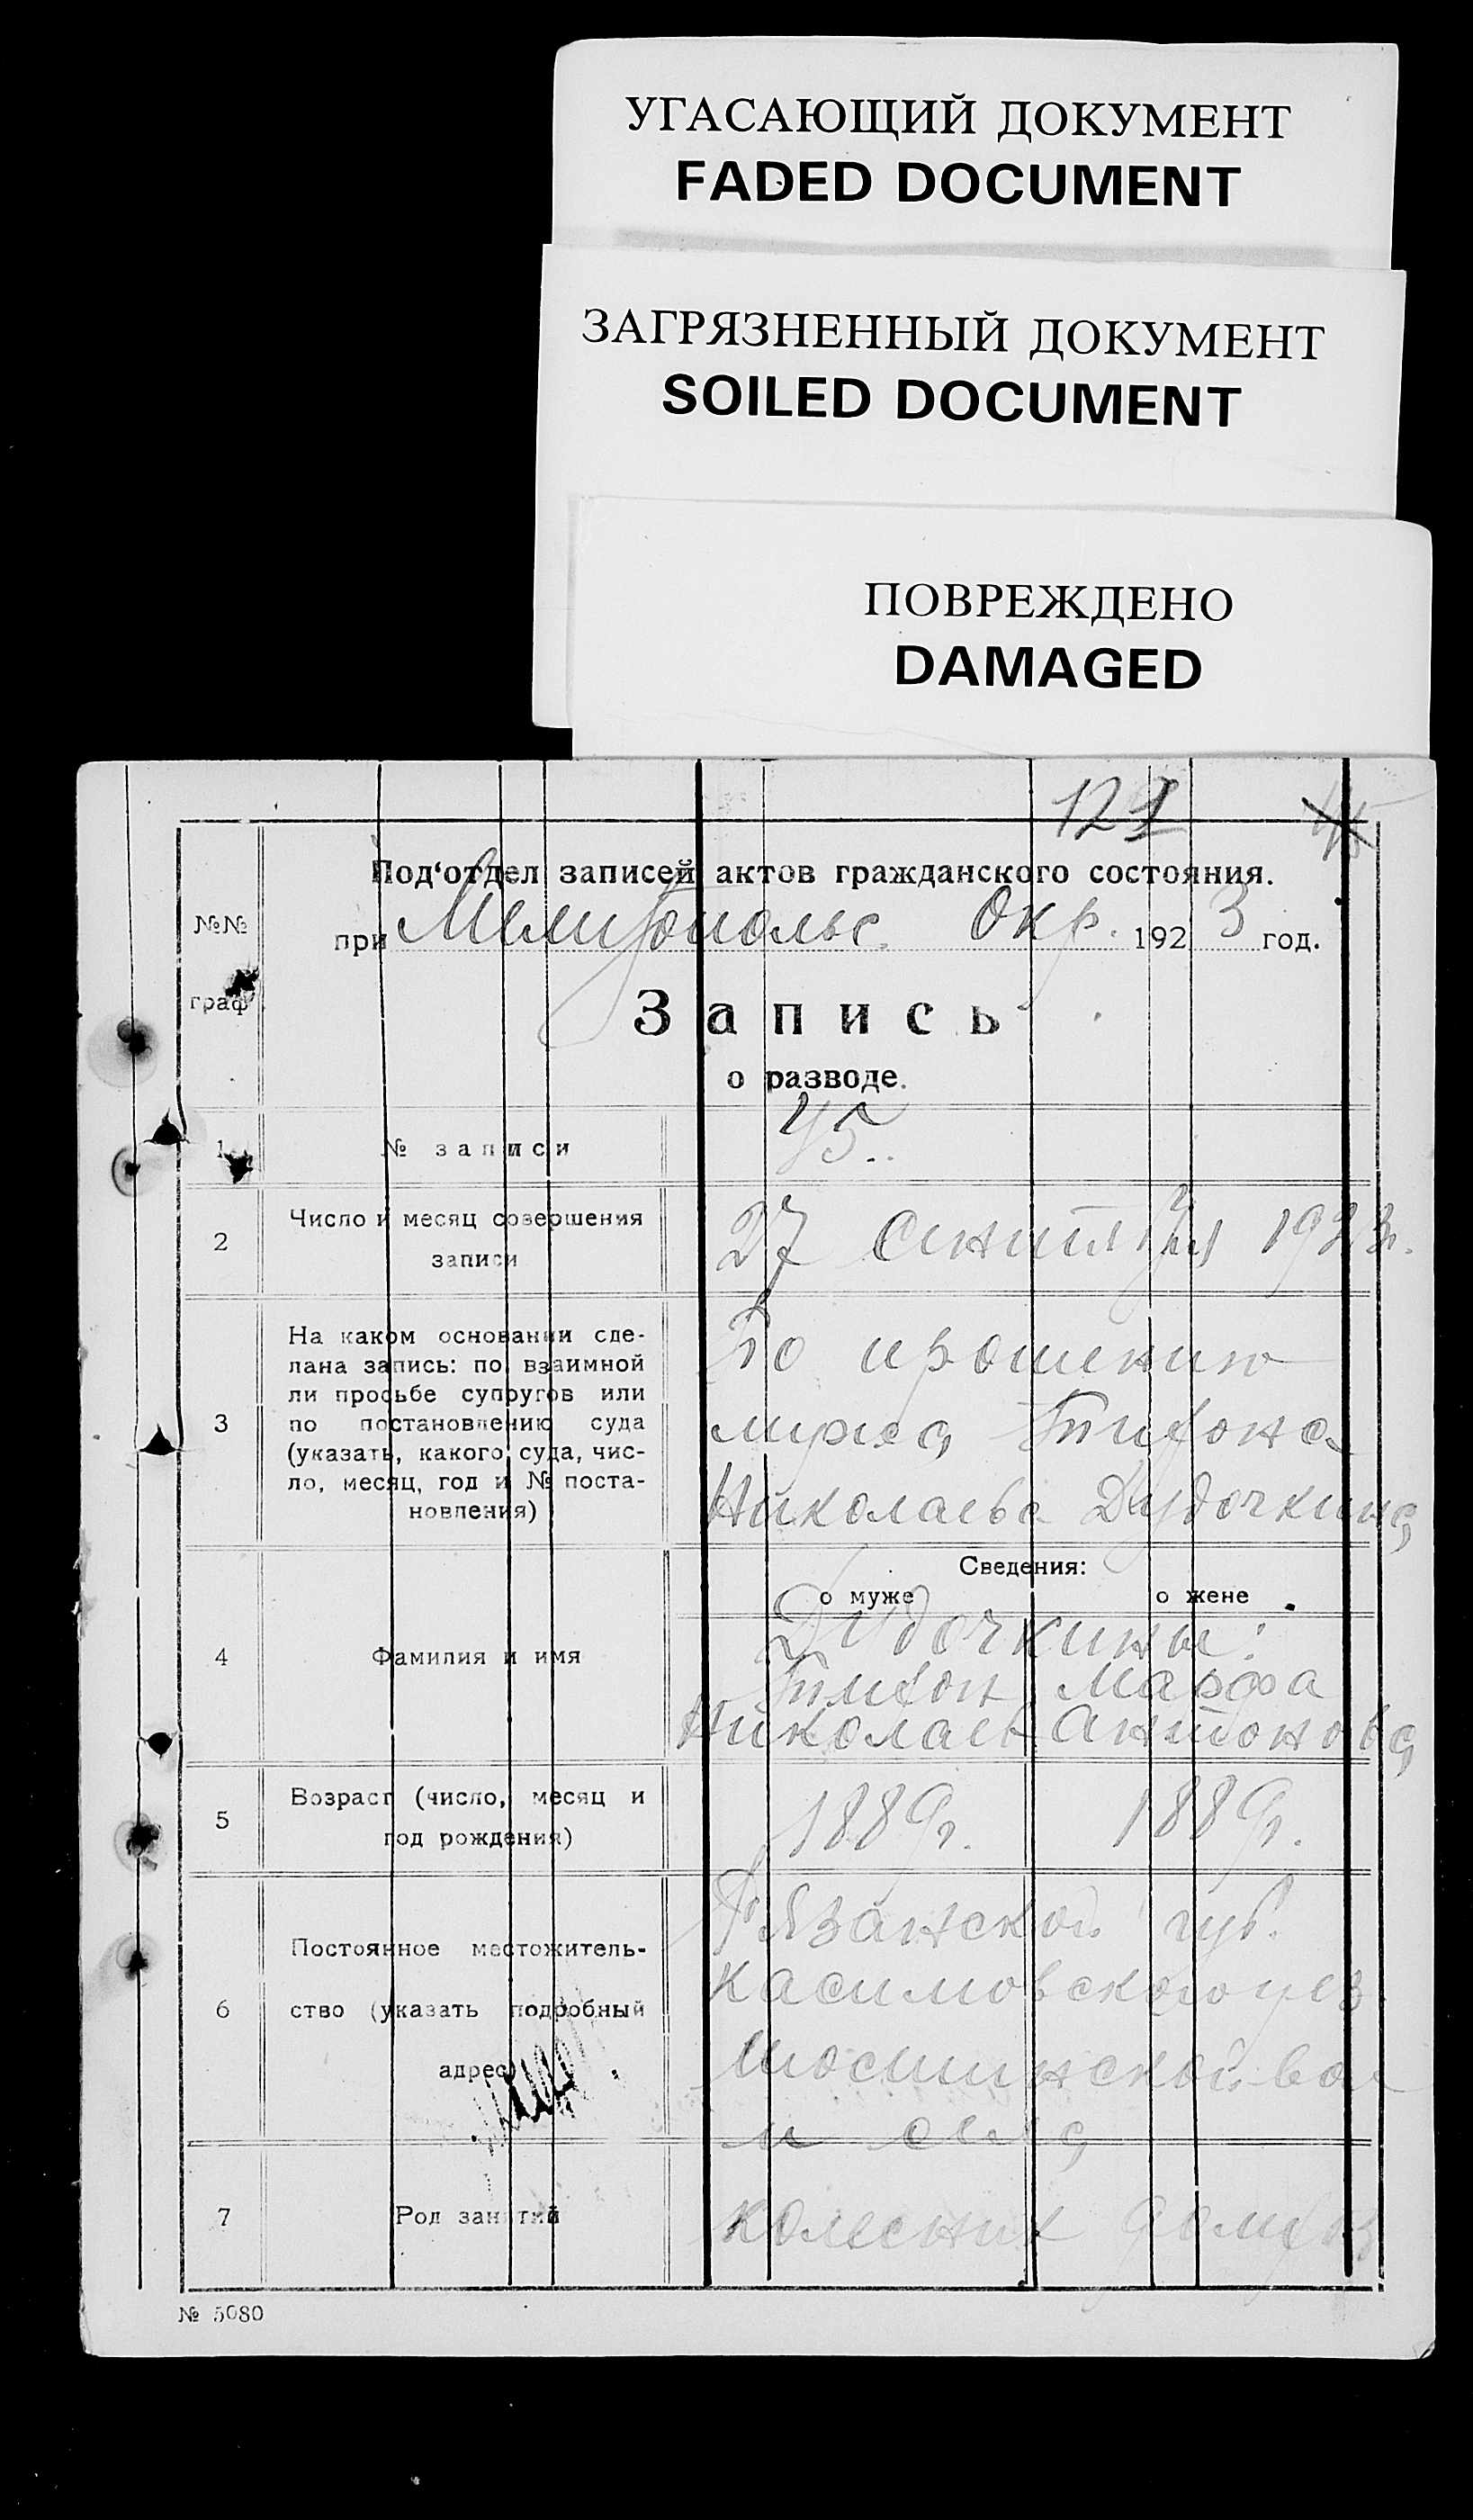 УГАСАЮЩИЙ ДОКУМЕНТ
FADED DOCUMENT
ЗАГРЯЗНЕННЫЙ ДОКУМЕНТ
SOILED DOCUMENT
ПОВРЕЖДЕНО
DAMAGED
121
№№ граф
Под‘отдел записей актов гражданского состояния.
при Мелитопольс. Окр. 1923 год.
Запись
о разводе.
1 № записи 45.
2 Число и месяц совершения
записи
27 Сентября 1923г.
3 На каком основании сде-
лана запись: по взаимной
ли просьбе супругов или
по постановлению суда
(указать, какого суда, чис-
ло, месяц, год и № поста-
новления)
По прошению
мужа Тихона
Николаева Дудочкина
Сведения:
о муже о жене
4 Фамилия и имя
Дудочкины:
Тихон Марфа
Николаев Антонова
5 Возраст (число, месяц и
год рождения)
1889г. 1889г.
6 Постоянное местожитель-
ство (указать подробный
адрес)
Рязанской губ.
Касимовского уез
вол
и села
7 Род занятий
колесник домхоз
№ 5080